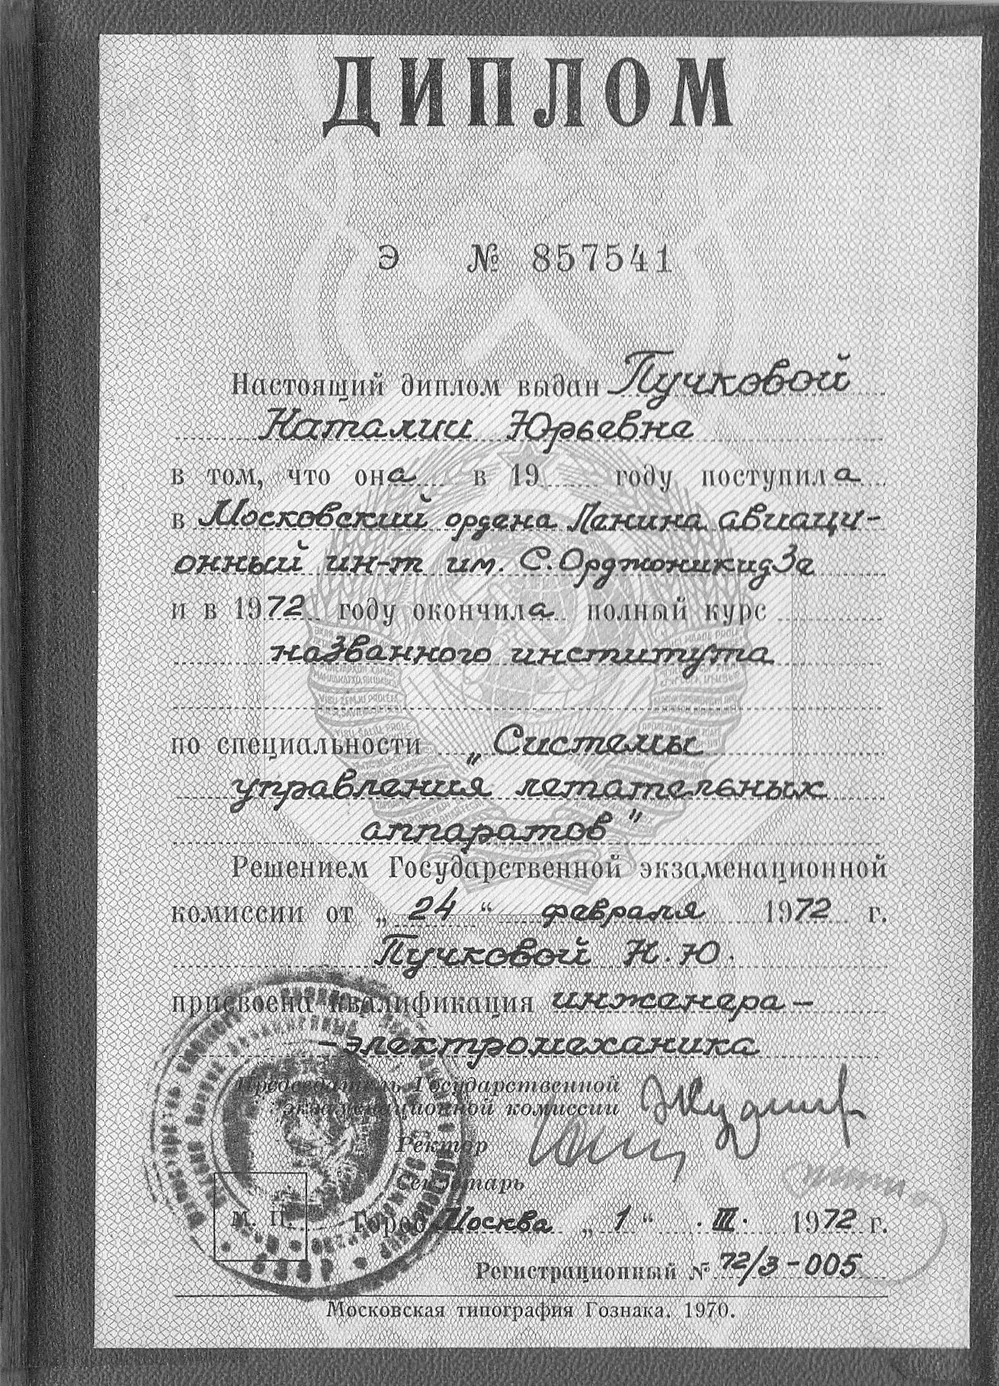 ДИПЛОМ
Э № 857541
Настоящий диплом выдан Пучковой
Наталии Юрьевне
в том, что она в 19 году поступила
в Московский ордена Ленина авиаци-
онный ин-т им. С. Орджоникидзе
и в 1972 году окончила полный курс
названного института
по специальности „Системы
управления летательных
аппаратов"
Решением Государственной экзаменационной
комиссии от „24“ февраля 1972 г.
Пучковой Н. Ю.
присвоена квалификация инженера-
-электромеханика
Председатель Государственной
экзаменационной комиссии
Ректор
Секретарь
М. П.
Город Москва „1“ III. 1972 г.
Регистрационный № 72/3-005
Московская типография Гознака. 1970.